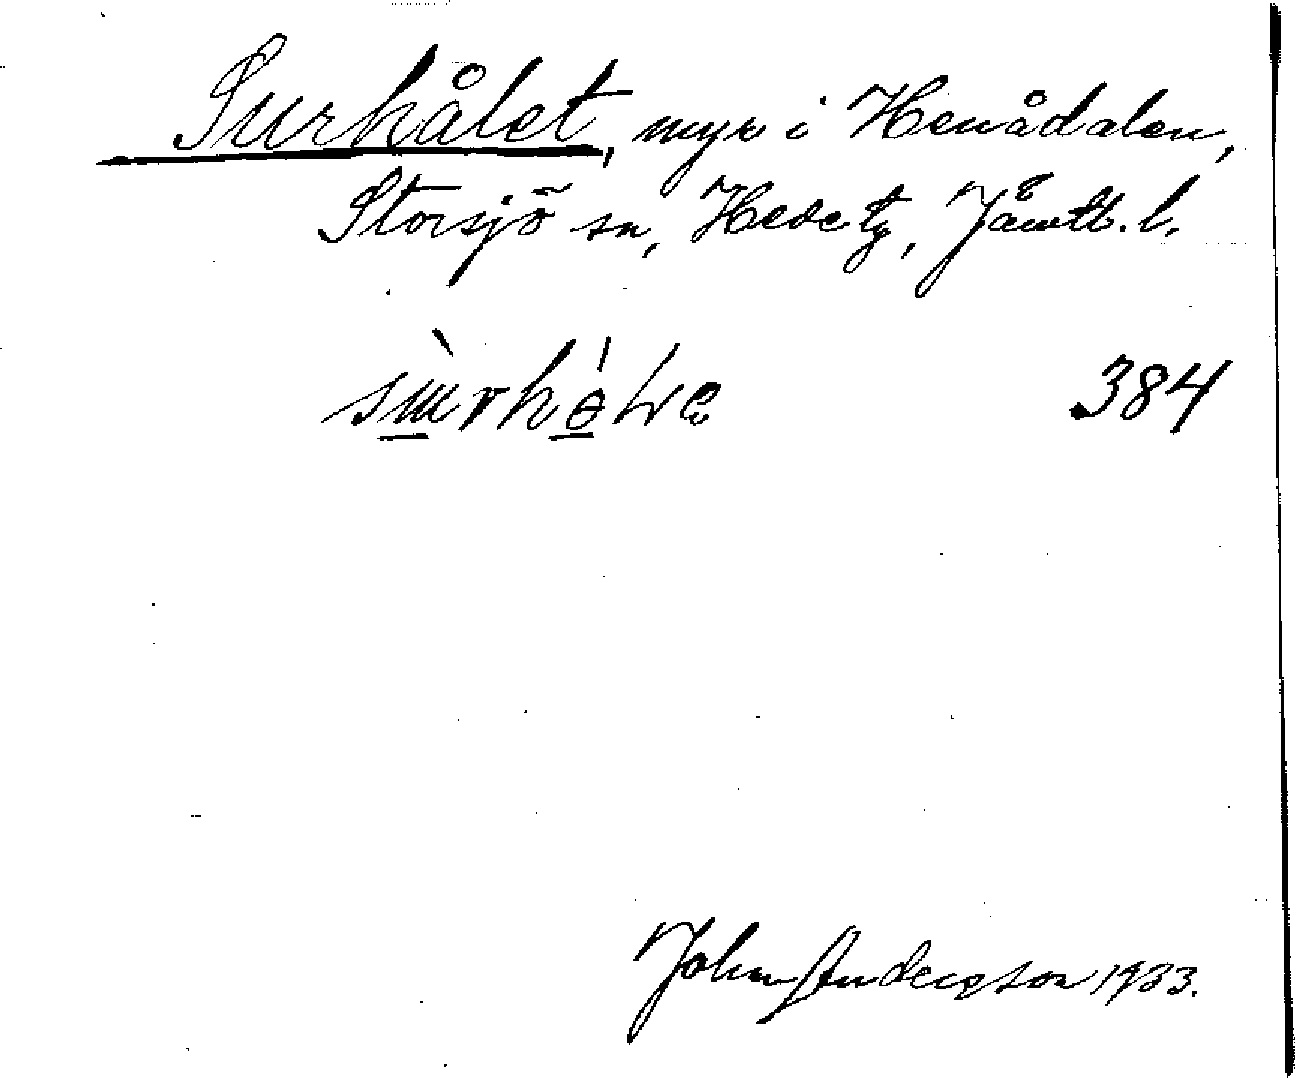 Surhålet, myr i Henådalen,
Storsjö sn, Hede tg, Jämtl. l.
384
John Andersson 1933.